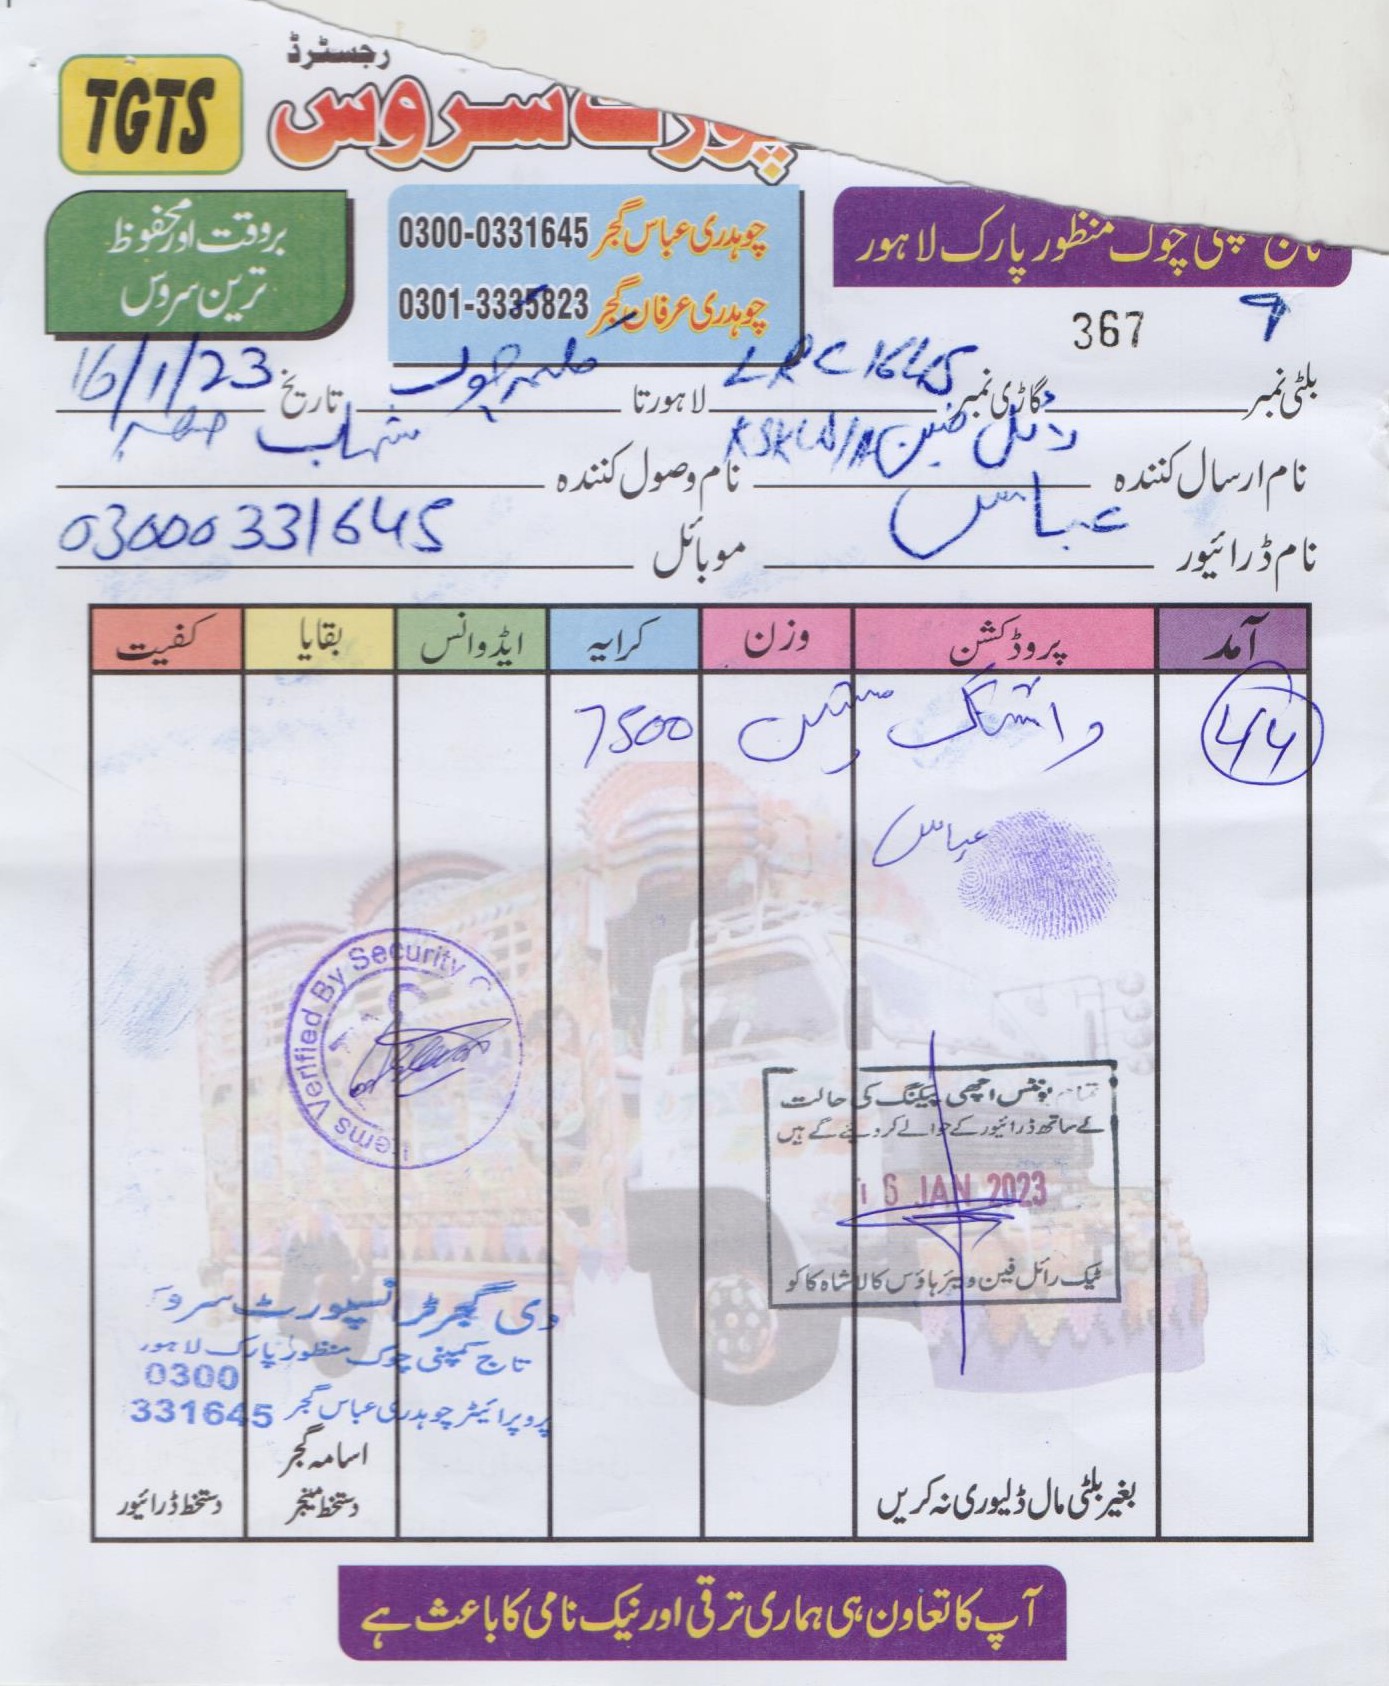 رجسٹرڈ
TGTS
پورٹ سروس
بروقت اور محفوظ
ترین سروس
چوہدری عباس گجر 0300-0331645
چوہدری عرفان گجر 0301-3335823
چوک منظور پارک لاہور
367
بلٹی نمبر گاڑی نمبر LRC 1645 لاہور تا تاریخ 16/1/23
نام ارسال کنندہ رائل فین KSK نام وصول کنندہ شہاب
نام ڈرائیور عباس موبائل 03000331645
آمد پروڈکشن وزن کرایہ ایڈوانس بقایا کفیت
44 واشنگ مشین 7500
عباس
Items Verified By Security
تمام یونٹس اچھی پیکنگ کی حالت
کے ساتھ ڈرائیور کے حوالے کر دیئے گئے ہیں
16 JAN 2023
ٹیک رائل فین ویئر ہاؤس کالا شاہ کاکو
دی گجر ٹرانسپورٹ سروس
تاج کمپنی چوک منظور پارک لاہور
0300
پروپرائیٹر چوہدری عباس گجر 331645
اسامہ گجر
دستخط منیجر
دستخط ڈرائیور
بغیر بلٹی مال ڈلیوری نہ کریں
آپ کا تعاون ہی ہماری ترقی اور نیک نامی کا باعث ہے